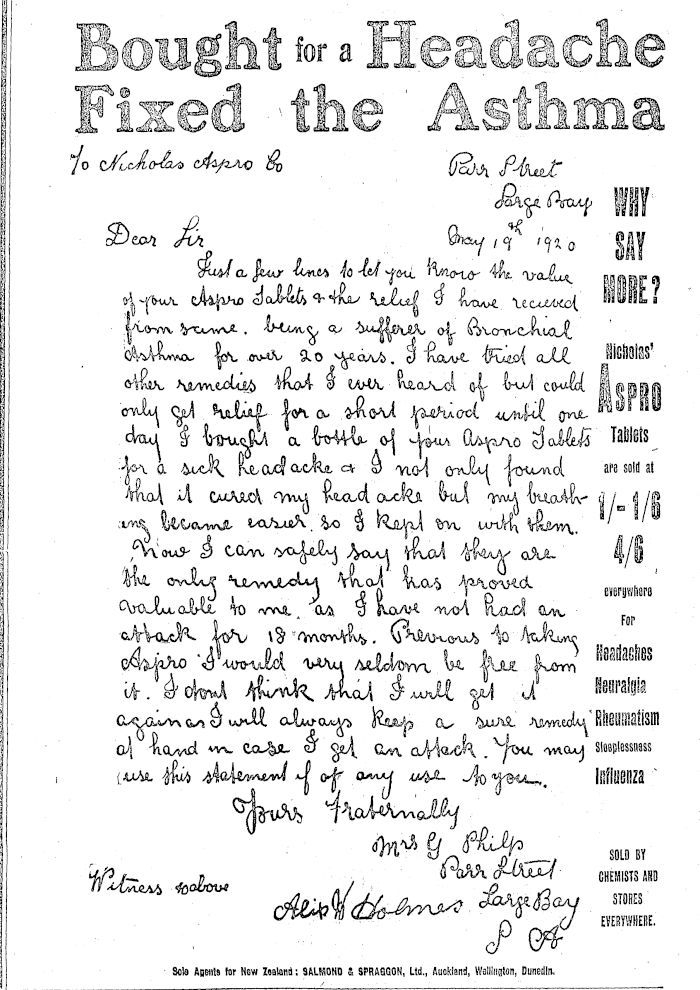 Bought for a Headache
Fixed the Asthma
To Nicholas Aspro Co
Parr Street
Large Bay
May 19th 1920
Dear Sir
Just a few lines to let you know the value
of your Aspro Tablets & the relief I have recieved
from same. being a sufferer of Bronchial
Asthma for over 20 years. I have tried all
other remedies that I ever heard of but could
only get relief for a short period until one
day I bought a bottle of your Aspro Tablets
for a sick headacke & I not only found
that it cured my head acke but my breath-
ing became easier. so I kept on with them.
Now I can safely say that they are
the only remedy that has proved
valuable to me. as I have not had an
attack for 18 months. Previous to taking
Aspro I would very seldom be free from
it. I dont think that I will get it
again as I will always keep a sure remedy
at hand in case I get an attack. You may
use this statement if of any use to you.
Yours fraternally
Mrs G Philp
Parr Street
Large Bay
S A
Witness to above
Alex W Holmes
WHY
SAY
MORE?
Nicholas'
ASPRO
Tablets
are sold at
1/- 1/6
4/6
everywhere
For
Headaches
Neuralgia
Rheumatism
Sleeplessness
Influenza
SOLD BY
CHEMISTS AND
STORES
EVERYWHERE.
Sole Agents for New Zealand: SALMOND & SPRAGGON, Ltd., Auckland, Wellington, Dunedin.